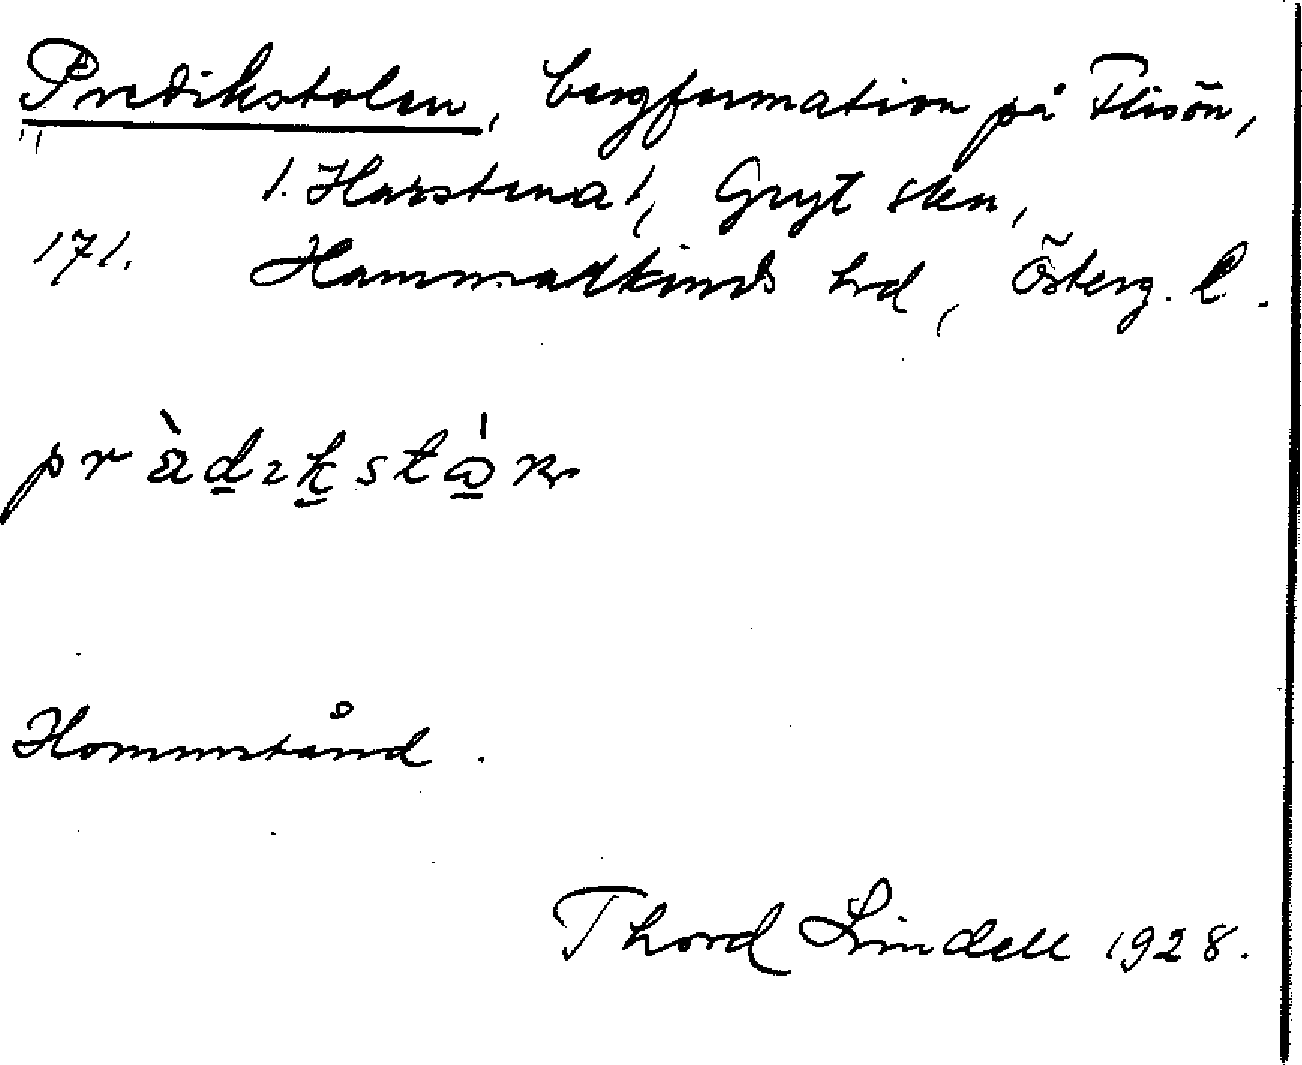 Predikstolen, bergformation på Flisön,
1. Harstena 1, Gryt skn,
171. Hammarkinds hrd, Österg. l.
Hommstånd.
Thord Lindell 1928.